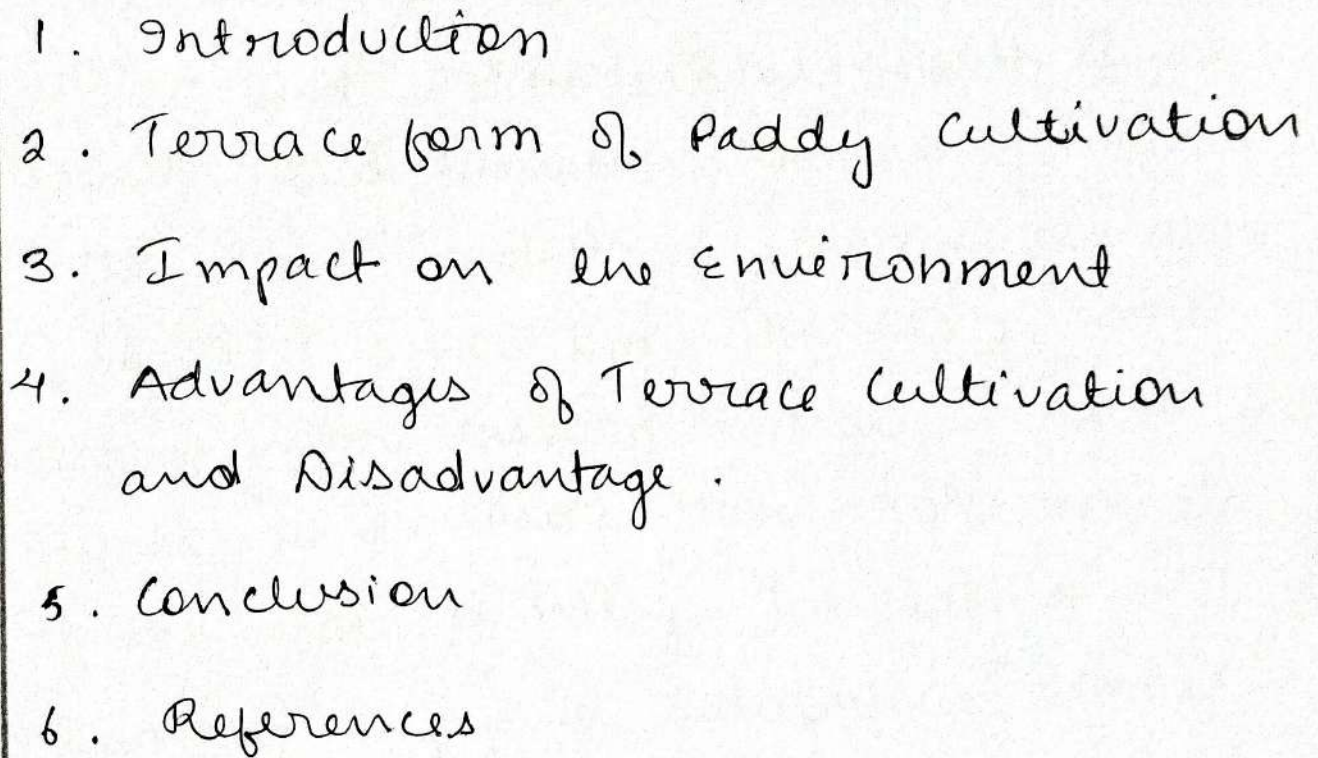 1. Introduction
2. Terrace form of Paddy Cultivation
3. Impact on the Environment
4. Advantages of Terrace Cultivation
and Disadvantage.
5. Conclusion
6. References